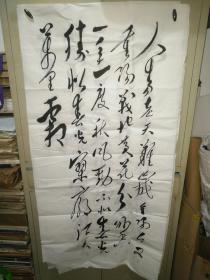 人生易老天難老歲歲重陽今又
重陽戰地黃花分外香
一年一度秋風勁不似春光
勝似春光寥廓江天
萬里霜